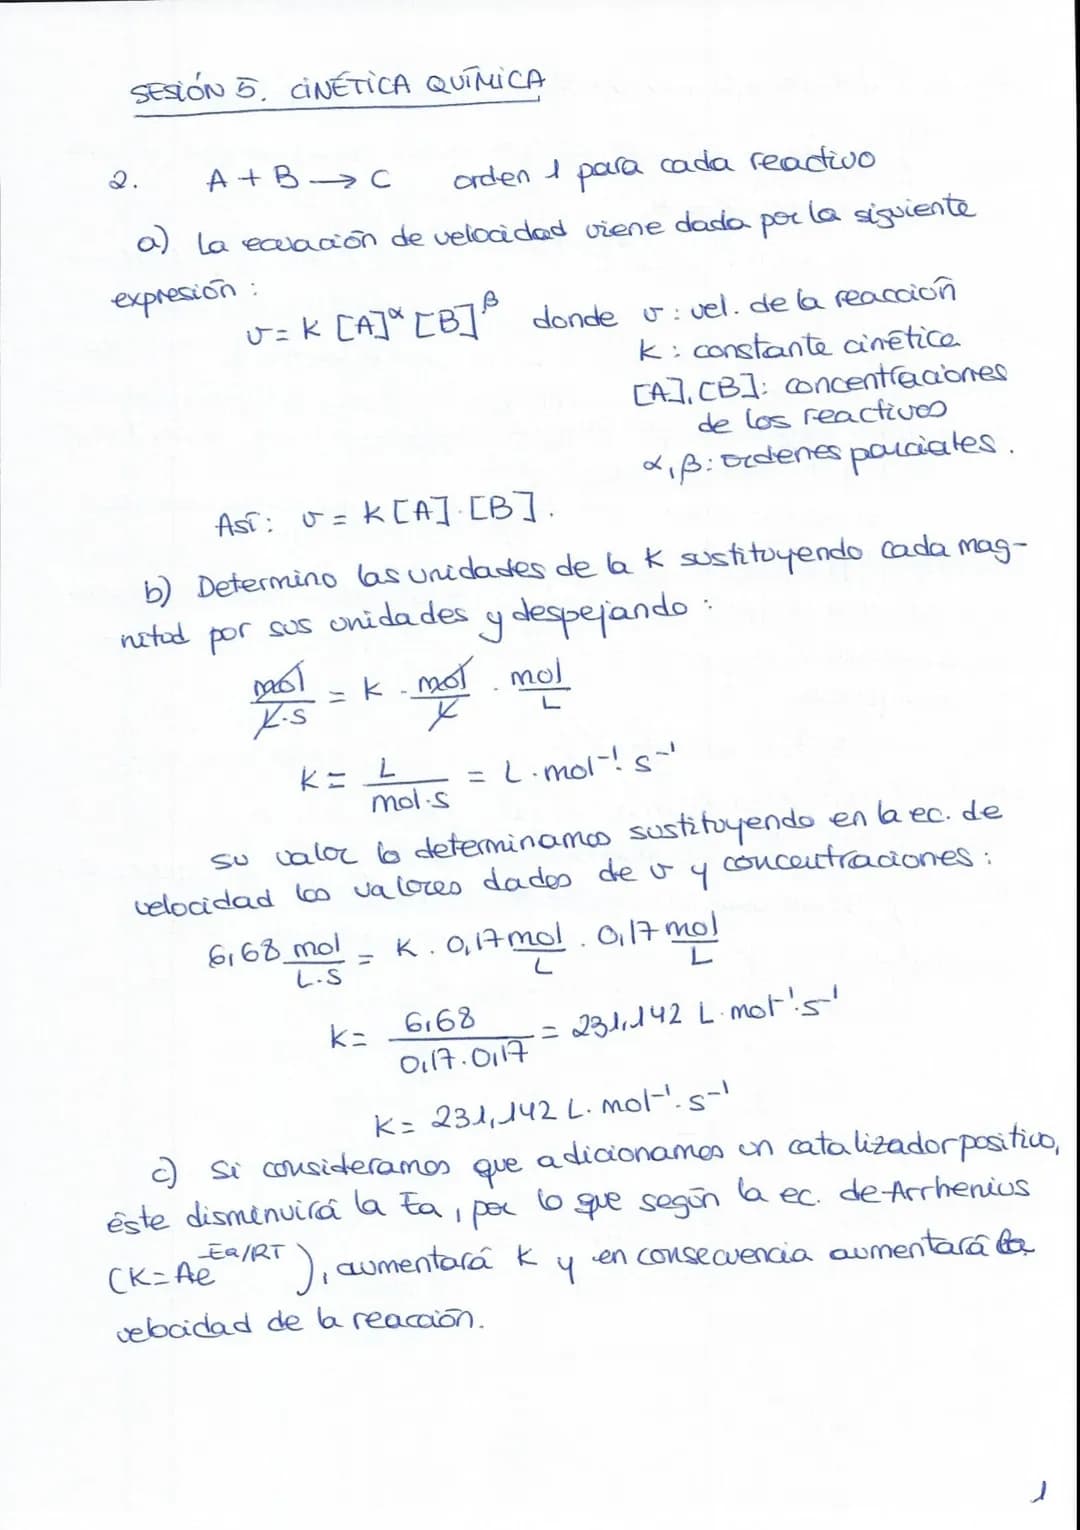 SESIÓN 5. CINÉTICA QUÍMICA
2. A + B → C orden 1 para cada reactivo
a) La ecuación de velocidad viene dada por la siguiente
expresión :
v = k [A]^α [B]^β donde v : vel. de la reacción
k : constante cinética
[A], [B]: concentraciones
de los reactivos
α, β: órdenes parciales.
Así: v = k [A]·[B].
b) Determino las unidades de la k sustituyendo cada mag-
nitud por sus unidades y despejando :
mol/L·s = k · mol/L · mol/L
k = L/mol·s = L·mol⁻¹·s⁻¹
su valor lo determinamos sustituyendo en la ec. de
velocidad los valores dados de v y concentraciones :
6,68 mol/L·s = k · 0,17 mol/L · 0,17 mol/L
k = 6,68/0,17·0,17 = 231,142 L·mol⁻¹·s⁻¹
k = 231,142 L·mol⁻¹·s⁻¹
c) Si consideramos que adicionamos un catalizador positivo,
éste disminuirá la Ea, por lo que según la ec. de Arrhenius
(K=Ae^-Ea/RT), aumentará k y en consecuencia aumentará la
velocidad de la reacción.
1